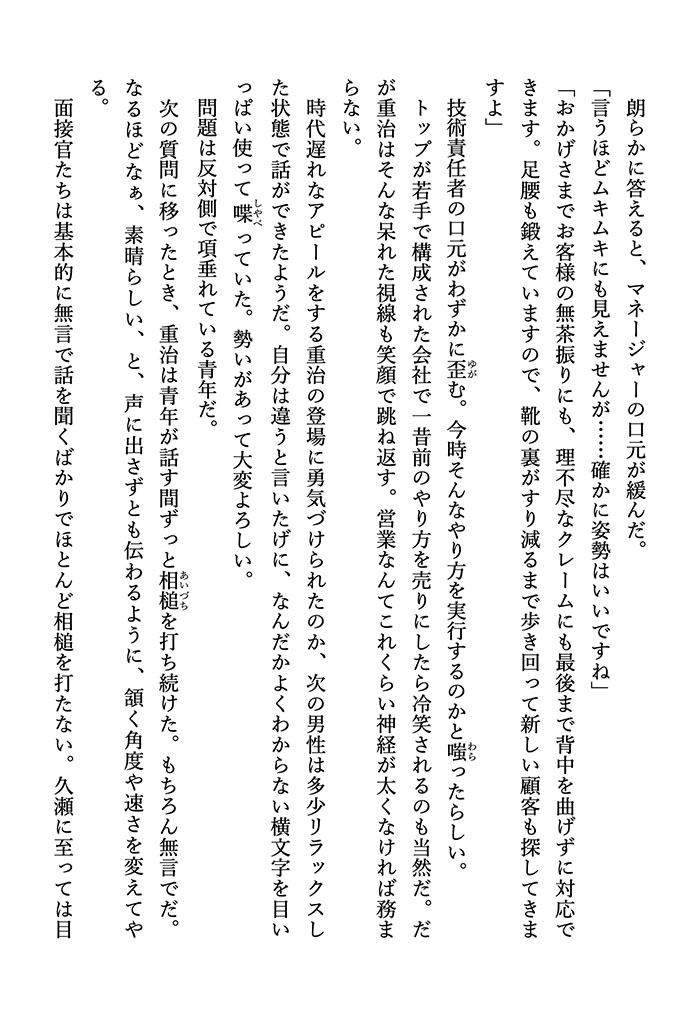 朗らかに答えると、マネージャーの口元が緩んだ。
「言うほどムキムキにも見えませんが……確かに姿勢はいいですね」
「おかげさまでお客様の無茶振りにも、理不尽なクレームにも最後まで背中を曲げずに対応で
きます。足腰も鍛えていますので、靴の裏がすり減るまで歩き回って新しい顧客も探してきま
すよ」
技術責任者の口元がわずかに歪む。今時そんなやり方を実行するのかと嗤ったらしい。
トップが若手で構成された会社で一昔前のやり方を売りにしたら冷笑されるのも当然だ。だ
が重治はそんな呆れた視線も笑顔で跳ね返す。営業なんてこれくらい神経が太くなければ務ま
らない。
時代遅れなアピールをする重治の登場に勇気づけられたのか、次の男性は多少リラックスし
た状態で話ができたようだ。自分は違うと言いたげに、なんだかよくわからない横文字を目い
っぱい使って喋っていた。勢いがあって大変よろしい。
問題は反対側で項垂れている青年だ。
次の質問に移ったとき、重治は青年が話す間ずっと相槌を打ち続けた。もちろん無言でだ。
なるほどなぁ、素晴らしい、と、声に出さずとも伝わるように、頷く角度や速さを変えてや
る。
面接官たちは基本的に無言で話を聞くばかりでほとんど相槌を打たない。久瀬に至っては目